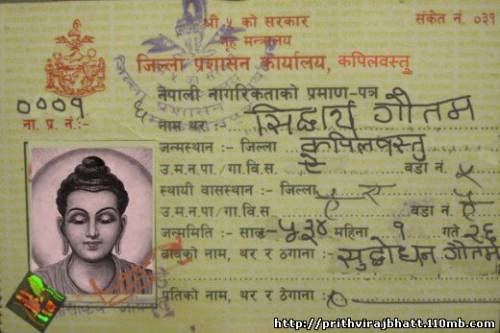 श्री ५ को सरकार
गृह मन्त्रालय
संकेत नं. ०३१
जिल्ला प्रशासन कार्यालय, कपिलवस्तु
नेपाली नागरिकताको प्रमाण-पत्र
०००१
ना. प्र. नं.:-
नाम थर : सिद्धार्थ गौतम
जन्मस्थान :- जिल्ला कपिलवस्तु
उ.म.न.पा./गा.वि.स. ऐ वडा नं. ५
स्थायी वासस्थान :- जिल्ला
उ.म.न.पा./गा.वि.स वडा नं. ऐ
जन्ममिति :- साल- ५३४ महिना १ गते २६
बाबुको नाम, थर र ठेगाना : सुद्धोधन गौतम
पतिको नाम, थर र ठेगाना :
http://prithvirajbhatt.110mb.com